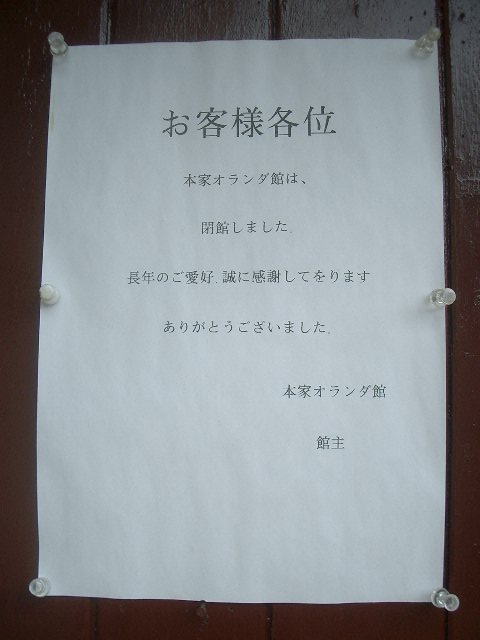 お客様各位
本家オランダ館は、
閉館しました.
長年のご愛好.誠に感謝してをります
ありがとうございました.
本家オランダ館
館主